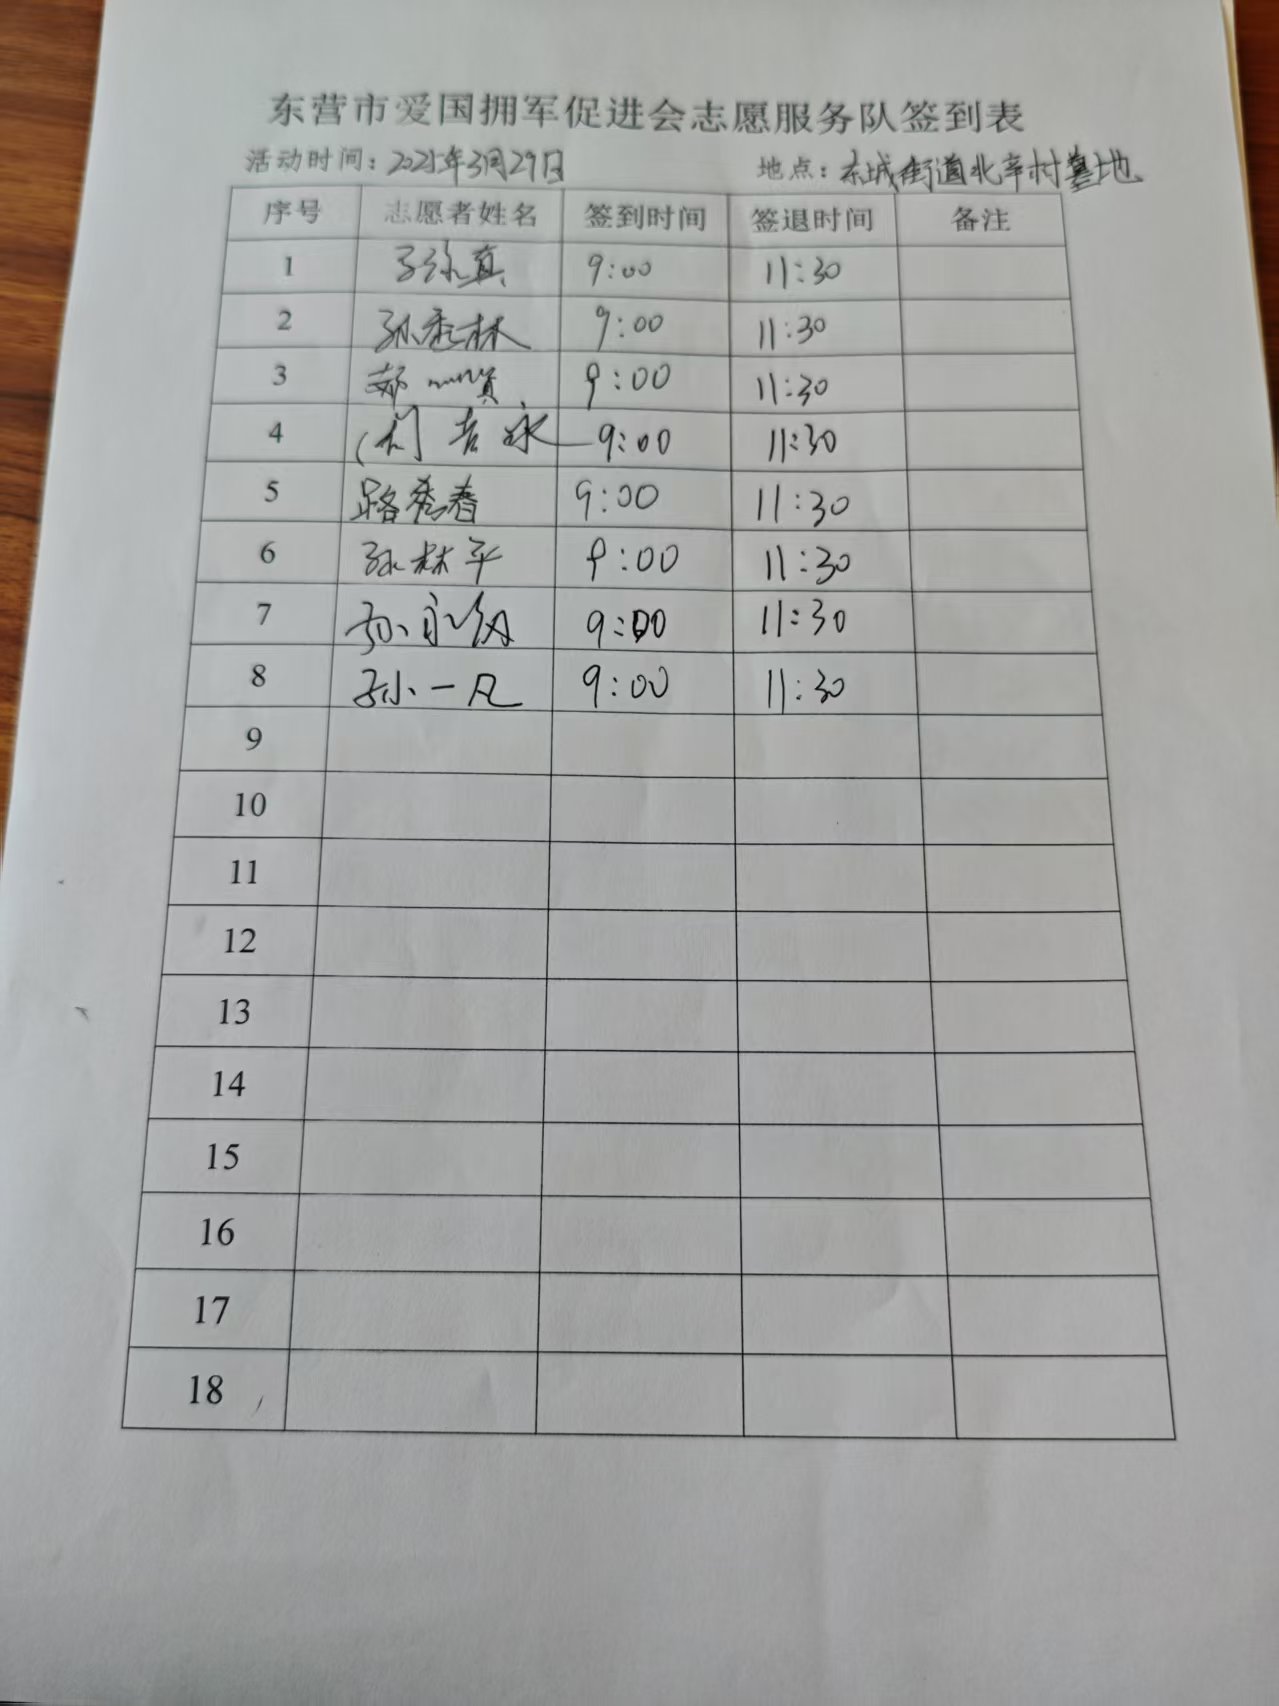 东营市爱国拥军促进会志愿服务队签到表
活动时间：2025年3月29日 地点：东城街道北辛村墓地
序号 志愿者姓名 签到时间 签退时间 备注
1 9:00 11:30
2 孙秀林 9:00 11:30
3 9:00 11:30
4 9:00 11:30
5 路秀春 9:00 11:30
6 孙林平 9:00 11:30
7 9:00 11:30
8 孙一凡 9:00 11:30
9
10
11
12
13
14
15
16
17
18